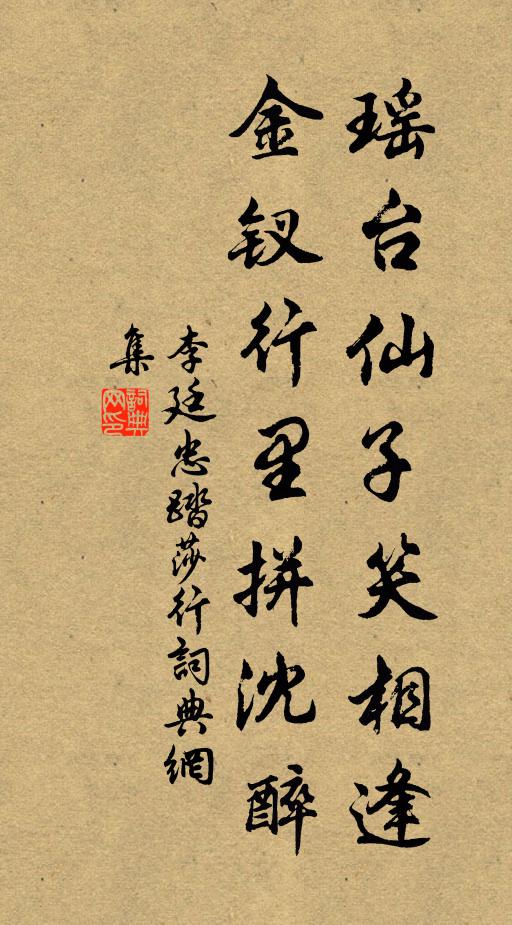 瑶台仙子笑相逢
金钗行里拼沈醉
李廷忠踏莎行詞典網
集
詞典
网印